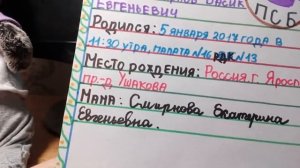 Евгеньевич
ПСБ
Родился: 5 января 2017 года в
11:30 утра, палата №16 №13
Место рождения: Россия г. Яросл
пр-д Ушакова
Мама: Смирнова Екатерина
Евгеньевна.